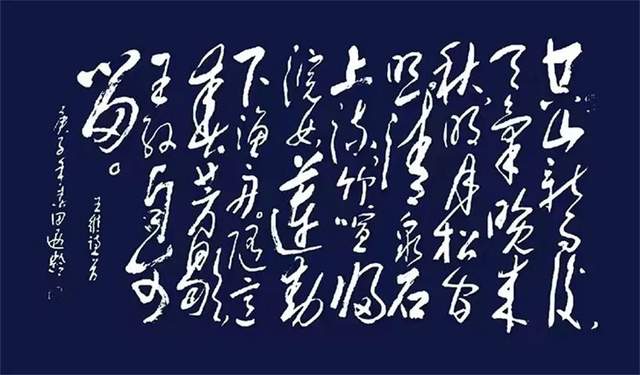 空山新雨後，
天氣晚来
秋，明月松间
照清泉石
上流竹喧归
浣女莲动
下渔舟。随意
春芳歇，
王孙自可
留。
王維詩
庚子年